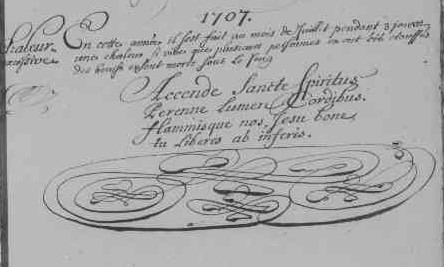 1707.
Chaleur
excessive
En cette année il s'est fait au mois de Juillet pendant 3 jours
une chaleur si vive que plusieurs personnes en ont été étouffés
des bœufs en sont morts sous le joug
Accende Sancte Spiritus
Perenne lumen Cordibus.
Flammisque nos, Jesu bone,
tu liberes ab inferis.